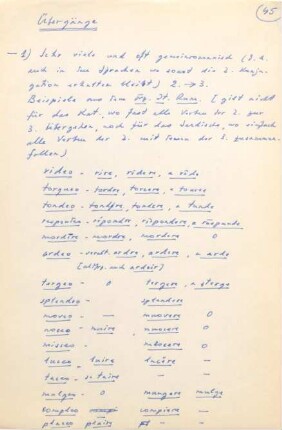 45
Übergänge
— 1) Sehr viele und oft gemeinromanisch (d.h.
auch in den Sprachen wo sonst die 2. Konju-
gation erhalten bleibt) 2. → 3.
Beispiele aus dem Frz. It. Rum. [gilt nicht
für das Kat. wo fast alle Verben der 2. zur
3. übergehen, noch für das Sardische, wo einfach
alle Verben der 2. mit denen der 3. zusammen-
fallen)
video – rire, ridere, a râde
torqueo – tordre, torcere, – toarce
tondeo – tondre, tondere, a tunde
respondeo – répondre, rispondere, a răspunde
mordeo – mordre, mordere 0
ardeo – ardre, ardere, a arde
[altfrz. auch ardoir]
tergeo – 0 tergere, a șterge
splendeo – splendere
moveo – — muovere 0
noceo – nuire, nuocere 0
misceo – mescere 0
luceo – luire lucere –
taceo – taire – –
mulgeo – 0 mungere mulge
compleo compiere –
placeo plaire – –